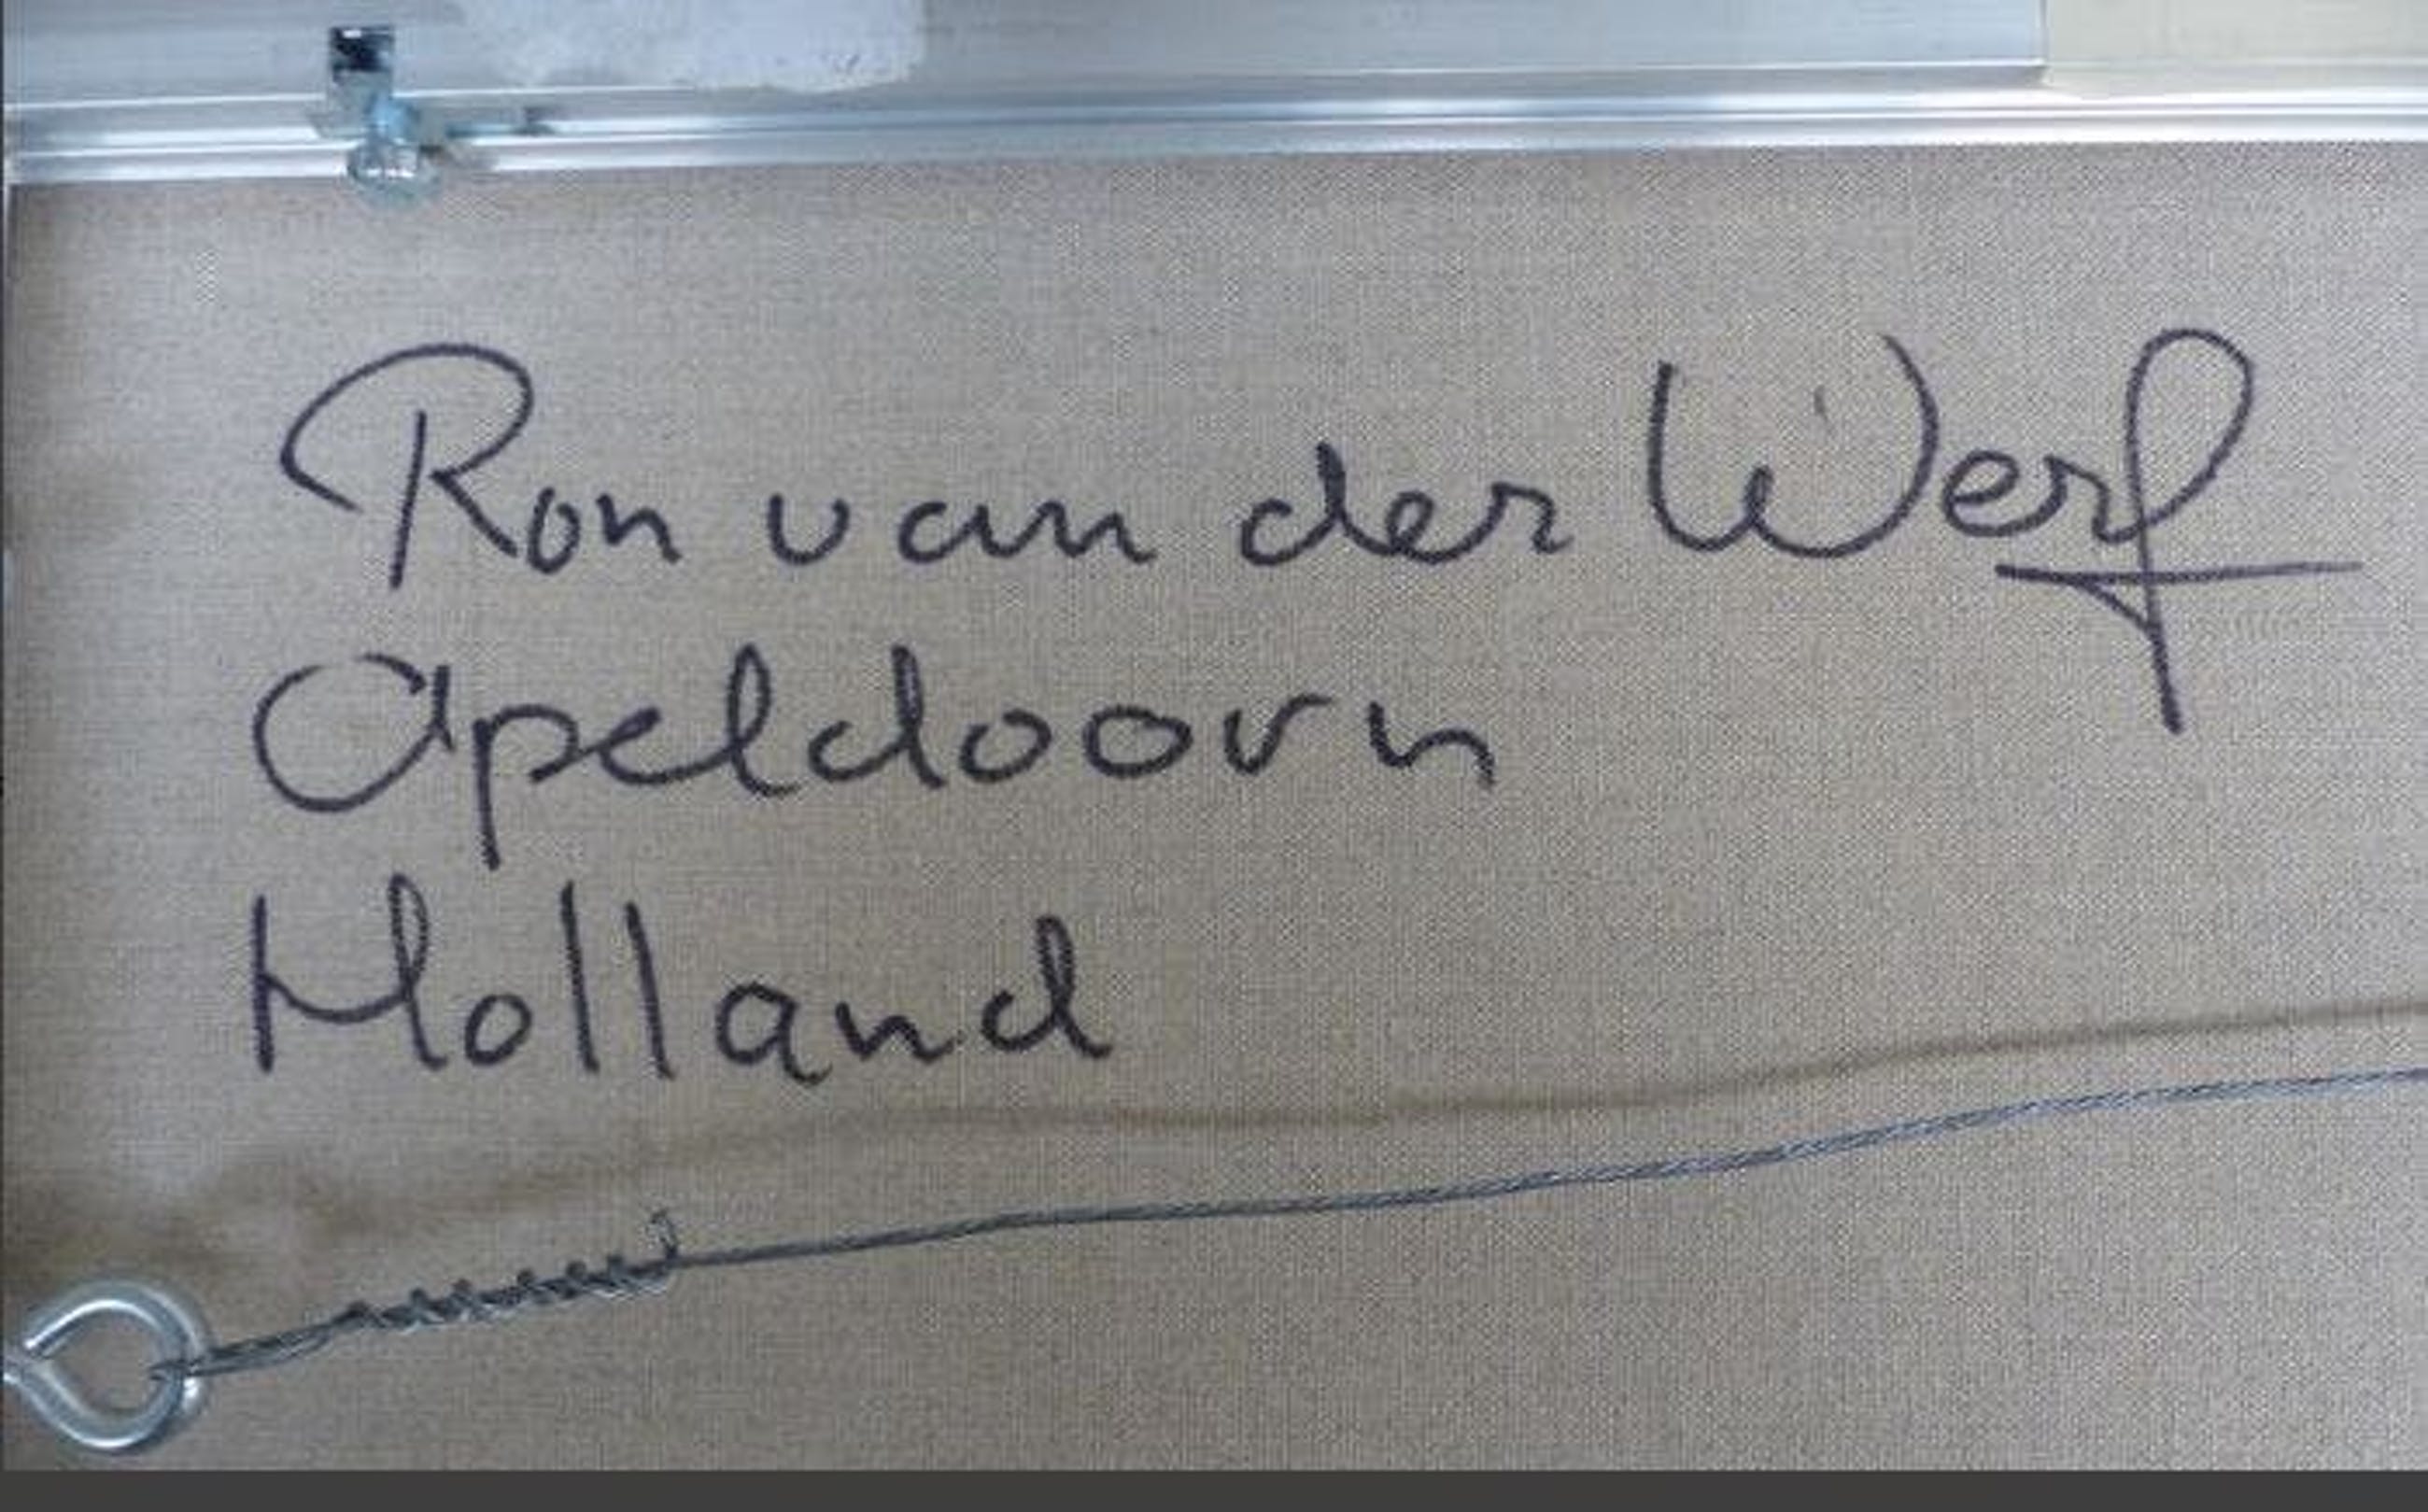 Ron van der Werf
Apeldoorn
Holland